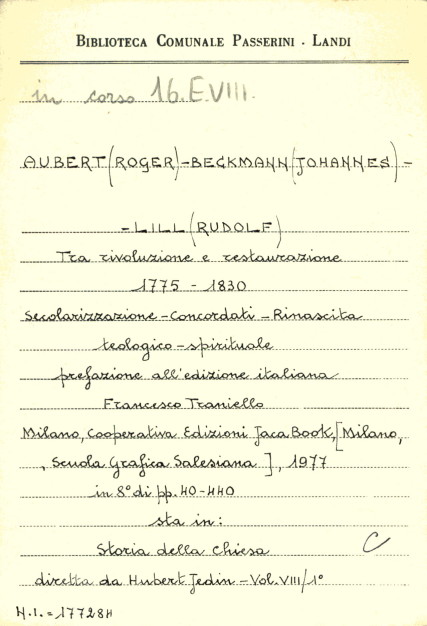 BIBLIOTECA COMUNALE PASSERINI - LANDI
in corso 16.E.VIII.
AUBERT (ROGER) - BECKMANN (JOHANNES) -
- LILL (RUDOLF)
Tra rivoluzione e restaurazione
1775 - 1830
Secolarizzazione - Concordati - Rinascita
teologico - spirituale
prefazione all'edizione italiana
Francesco Traniello
Milano, Cooperativa Edizioni Jaca Book, [Milano,
, Scuola Grafica Salesiana], 1977
in 8° di pp. 40-440
sta in:
Storia della Chiesa C
diretta da Hubert Jedin - Vol. VIII/1°
N.I. = 177284